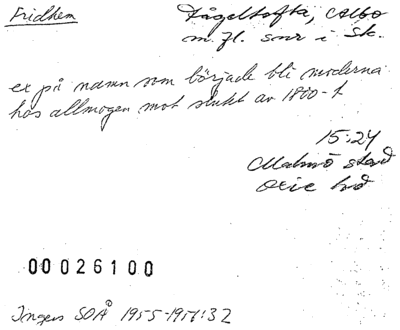 Fridhem
Fågeltofta, Albo
m. fl. snr i Sk.
ex på namn som började bli moderna
hos allmogen mot slutet av 1800-t.
15:24
Malmö stad
Oxie hd
00026100
Ingers SOÅ 1955-1957:32